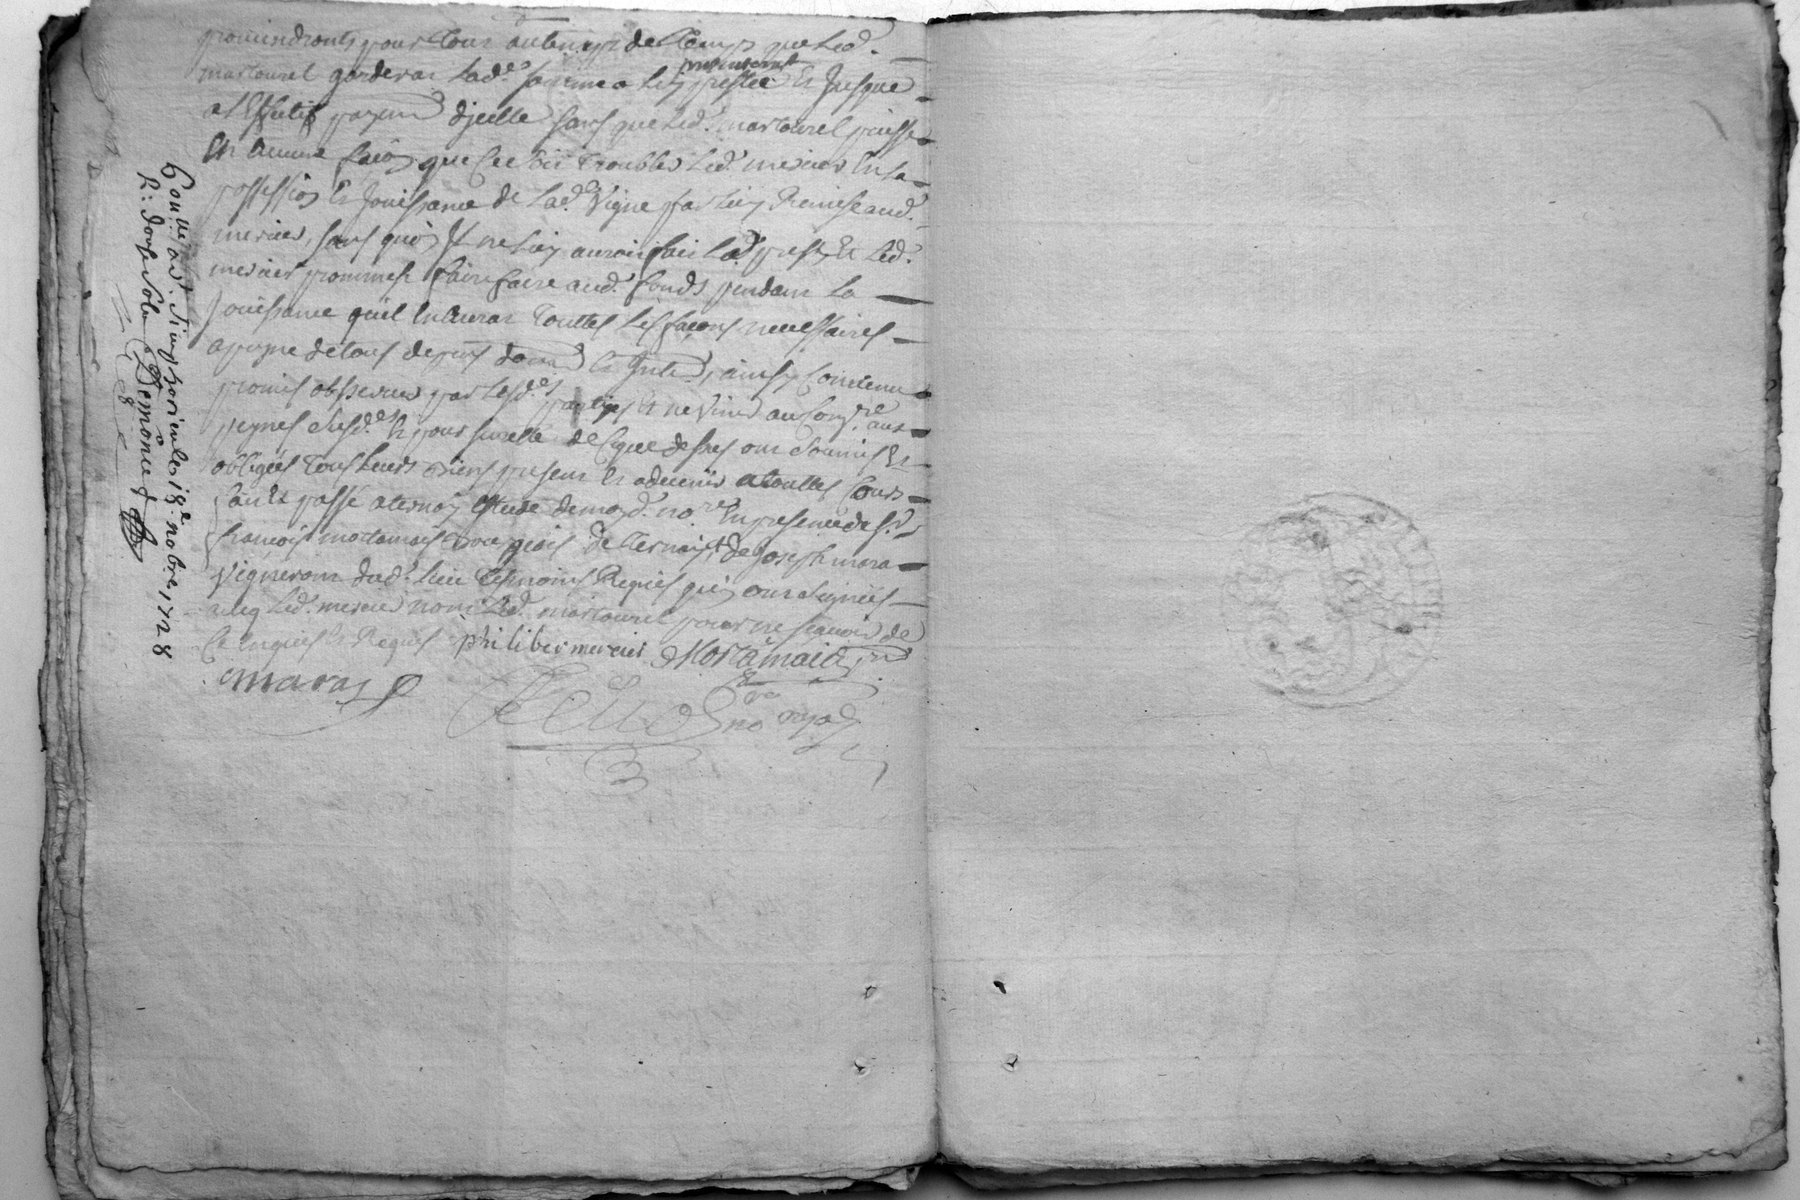 proviendronts pour tour autemps de temps que led.
martourel garderat lad.e somme a luy presentement prestée et jusque
a l'effectif payem.t d'jcelle sans que led. martourel puisse
en aucune façon que ce soit troubler led. mercier en sa
possession et jouissance de lad. vigne par luy remise aud.
mercier, sans quoy il ne luy auroit fait led. prest, et led.
mercier prommest faire faire aud. fonds pendant la
jouissance quil en aurat touttes les façons necessaires
a peyne de tous depens dom. et inter. ainsy convenu
promis observer par lesd.es parties et ne venir au contre aux
peynes susd.es et pour sureté de ce que dessus ont soumis et
obligées tous leurs biens present et advenir a touttes cours
fait et passé a ternay estude de moyd. no.re en presence de s.r
francois mortamais bourgeois de ternay et de joseph mara
vigneron dud. lieu tesmoins requis qui ont signées
avec led. mercier non led. martourel pour ne sçavoir de
ce enquis et requis philiber mercier Mortamais
maras
no.re royal
Con.lle a s.t Simphorien le 18.e no.bre 1728
R. douze sols